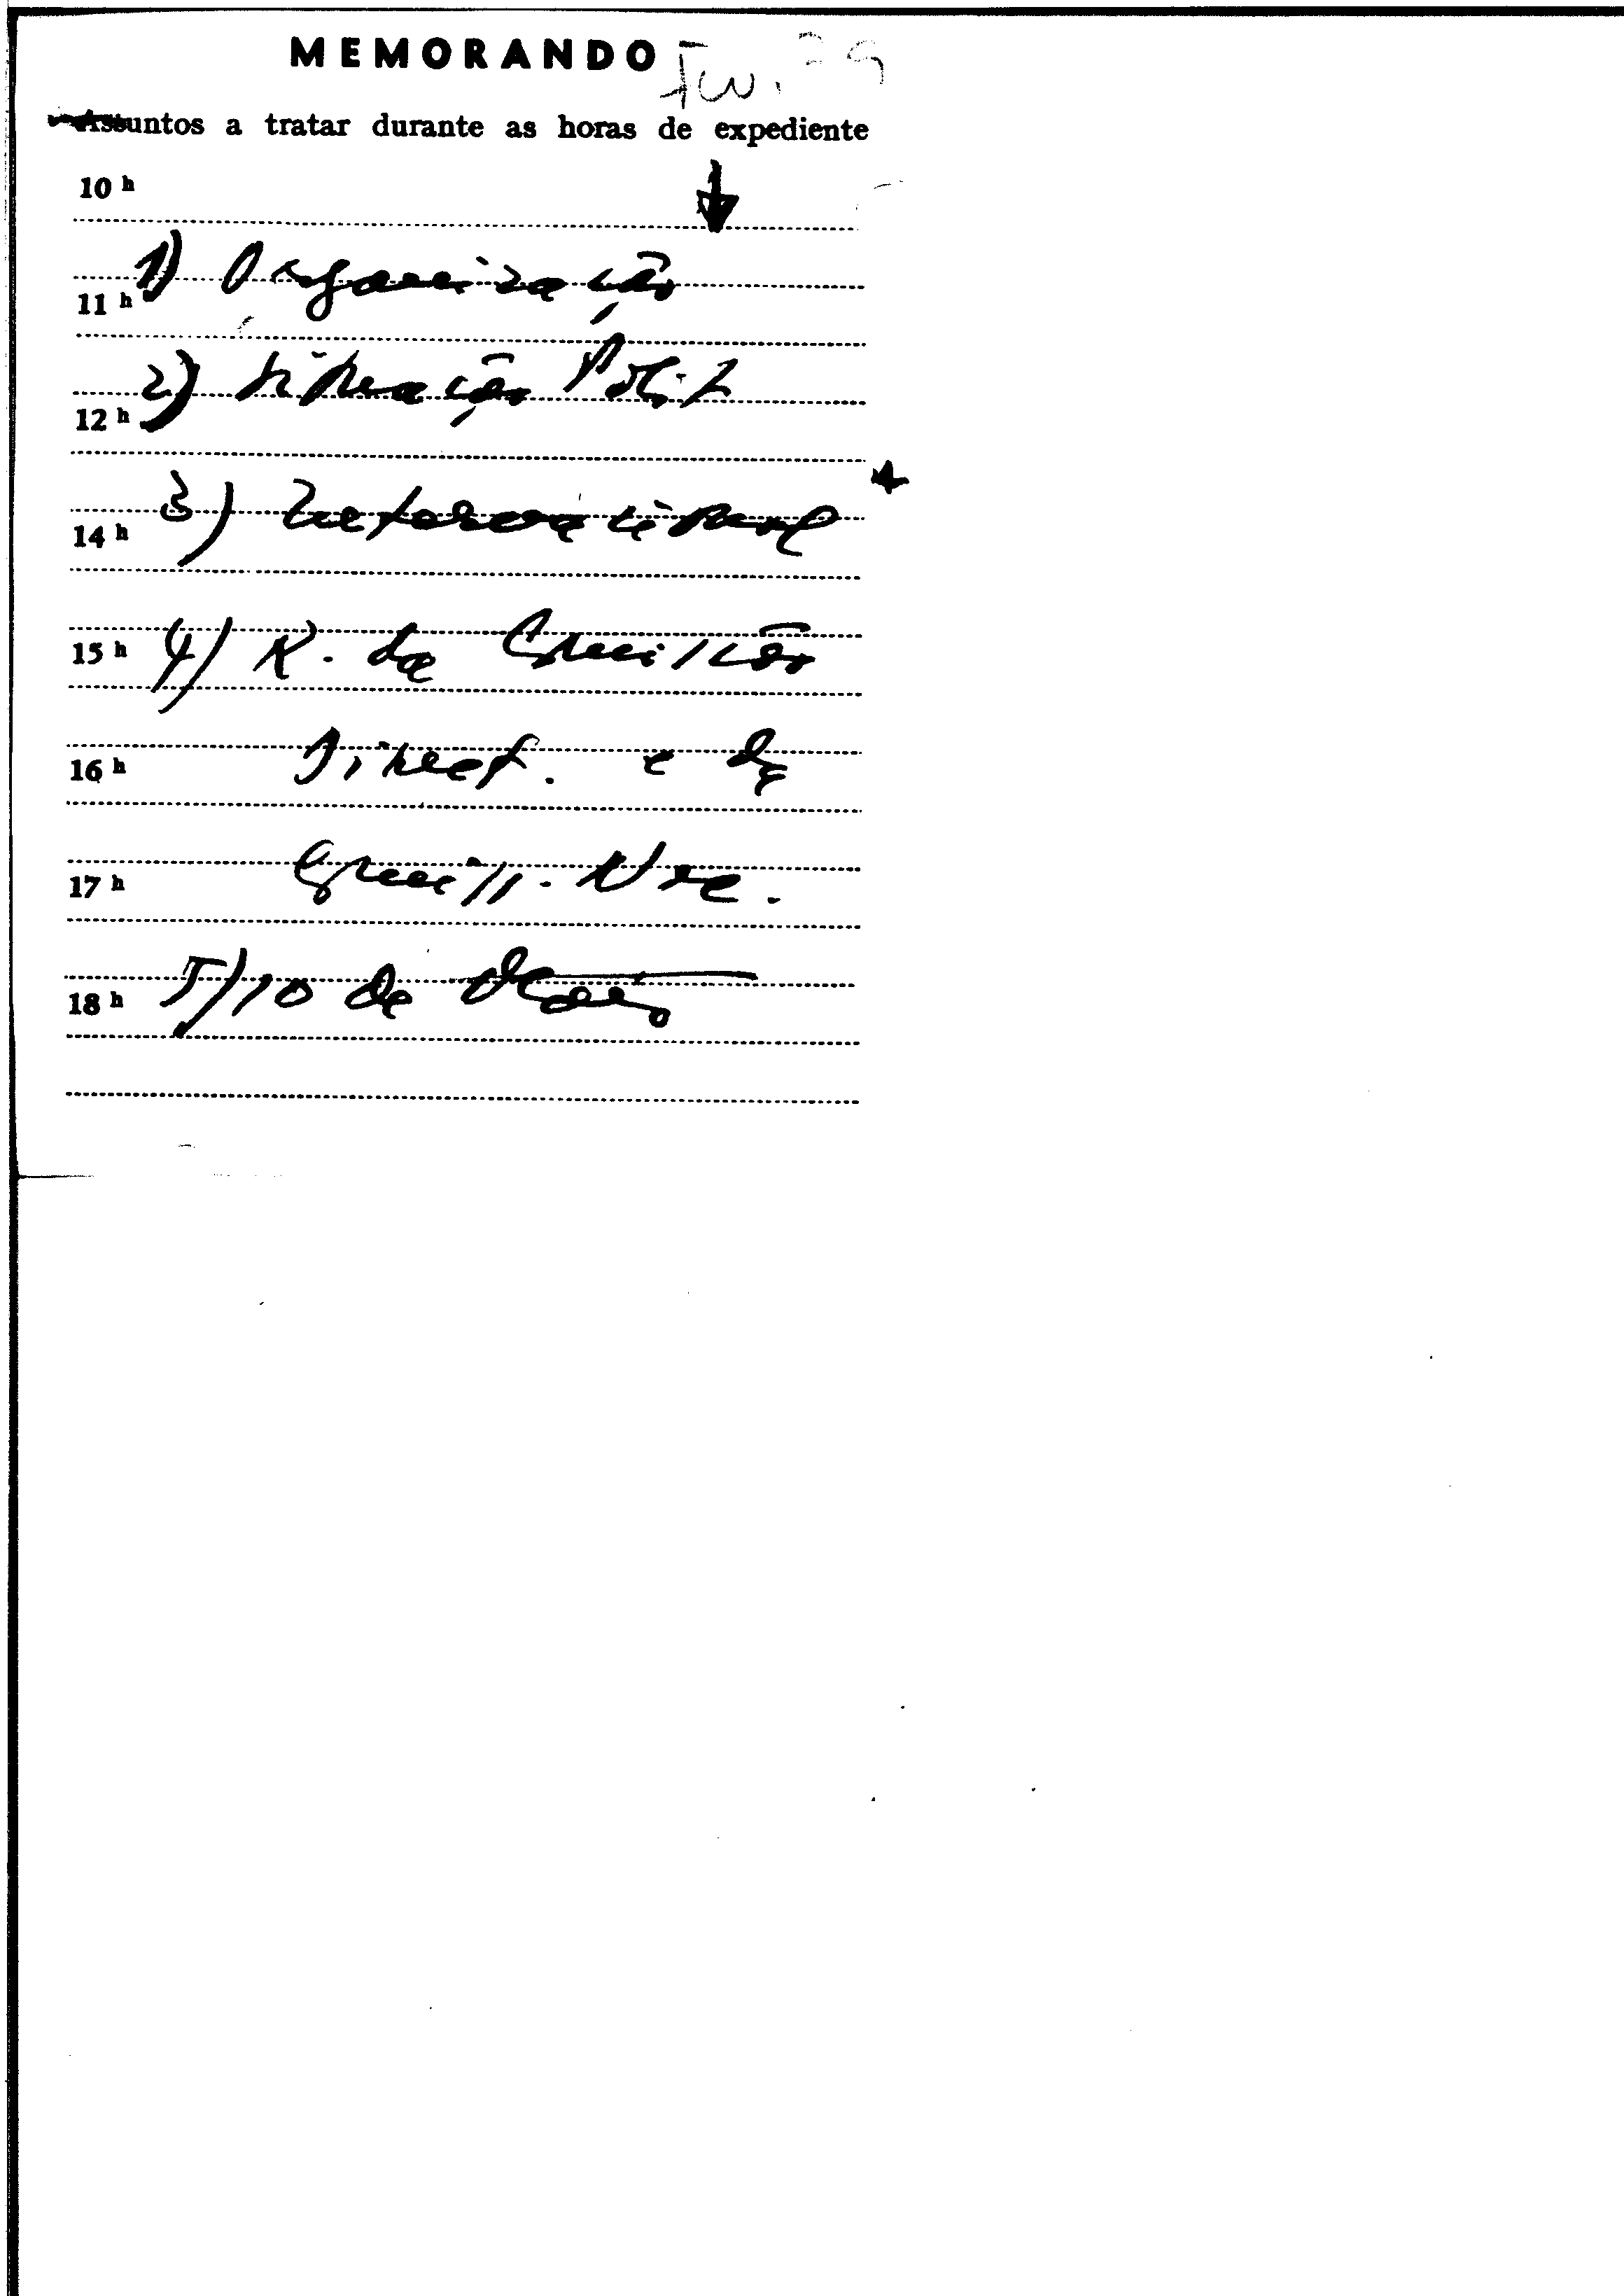 MEMORANDO
Assuntos a tratar durante as horas de expediente
10 h
1) Organização
11 h
2) Situação Polit
12 h
3) Internacional
14 h
15 h 4) R. da Comissão
16 h Direct. e da
17 h Comiss. Nac.
18 h 5) 10 de Maio